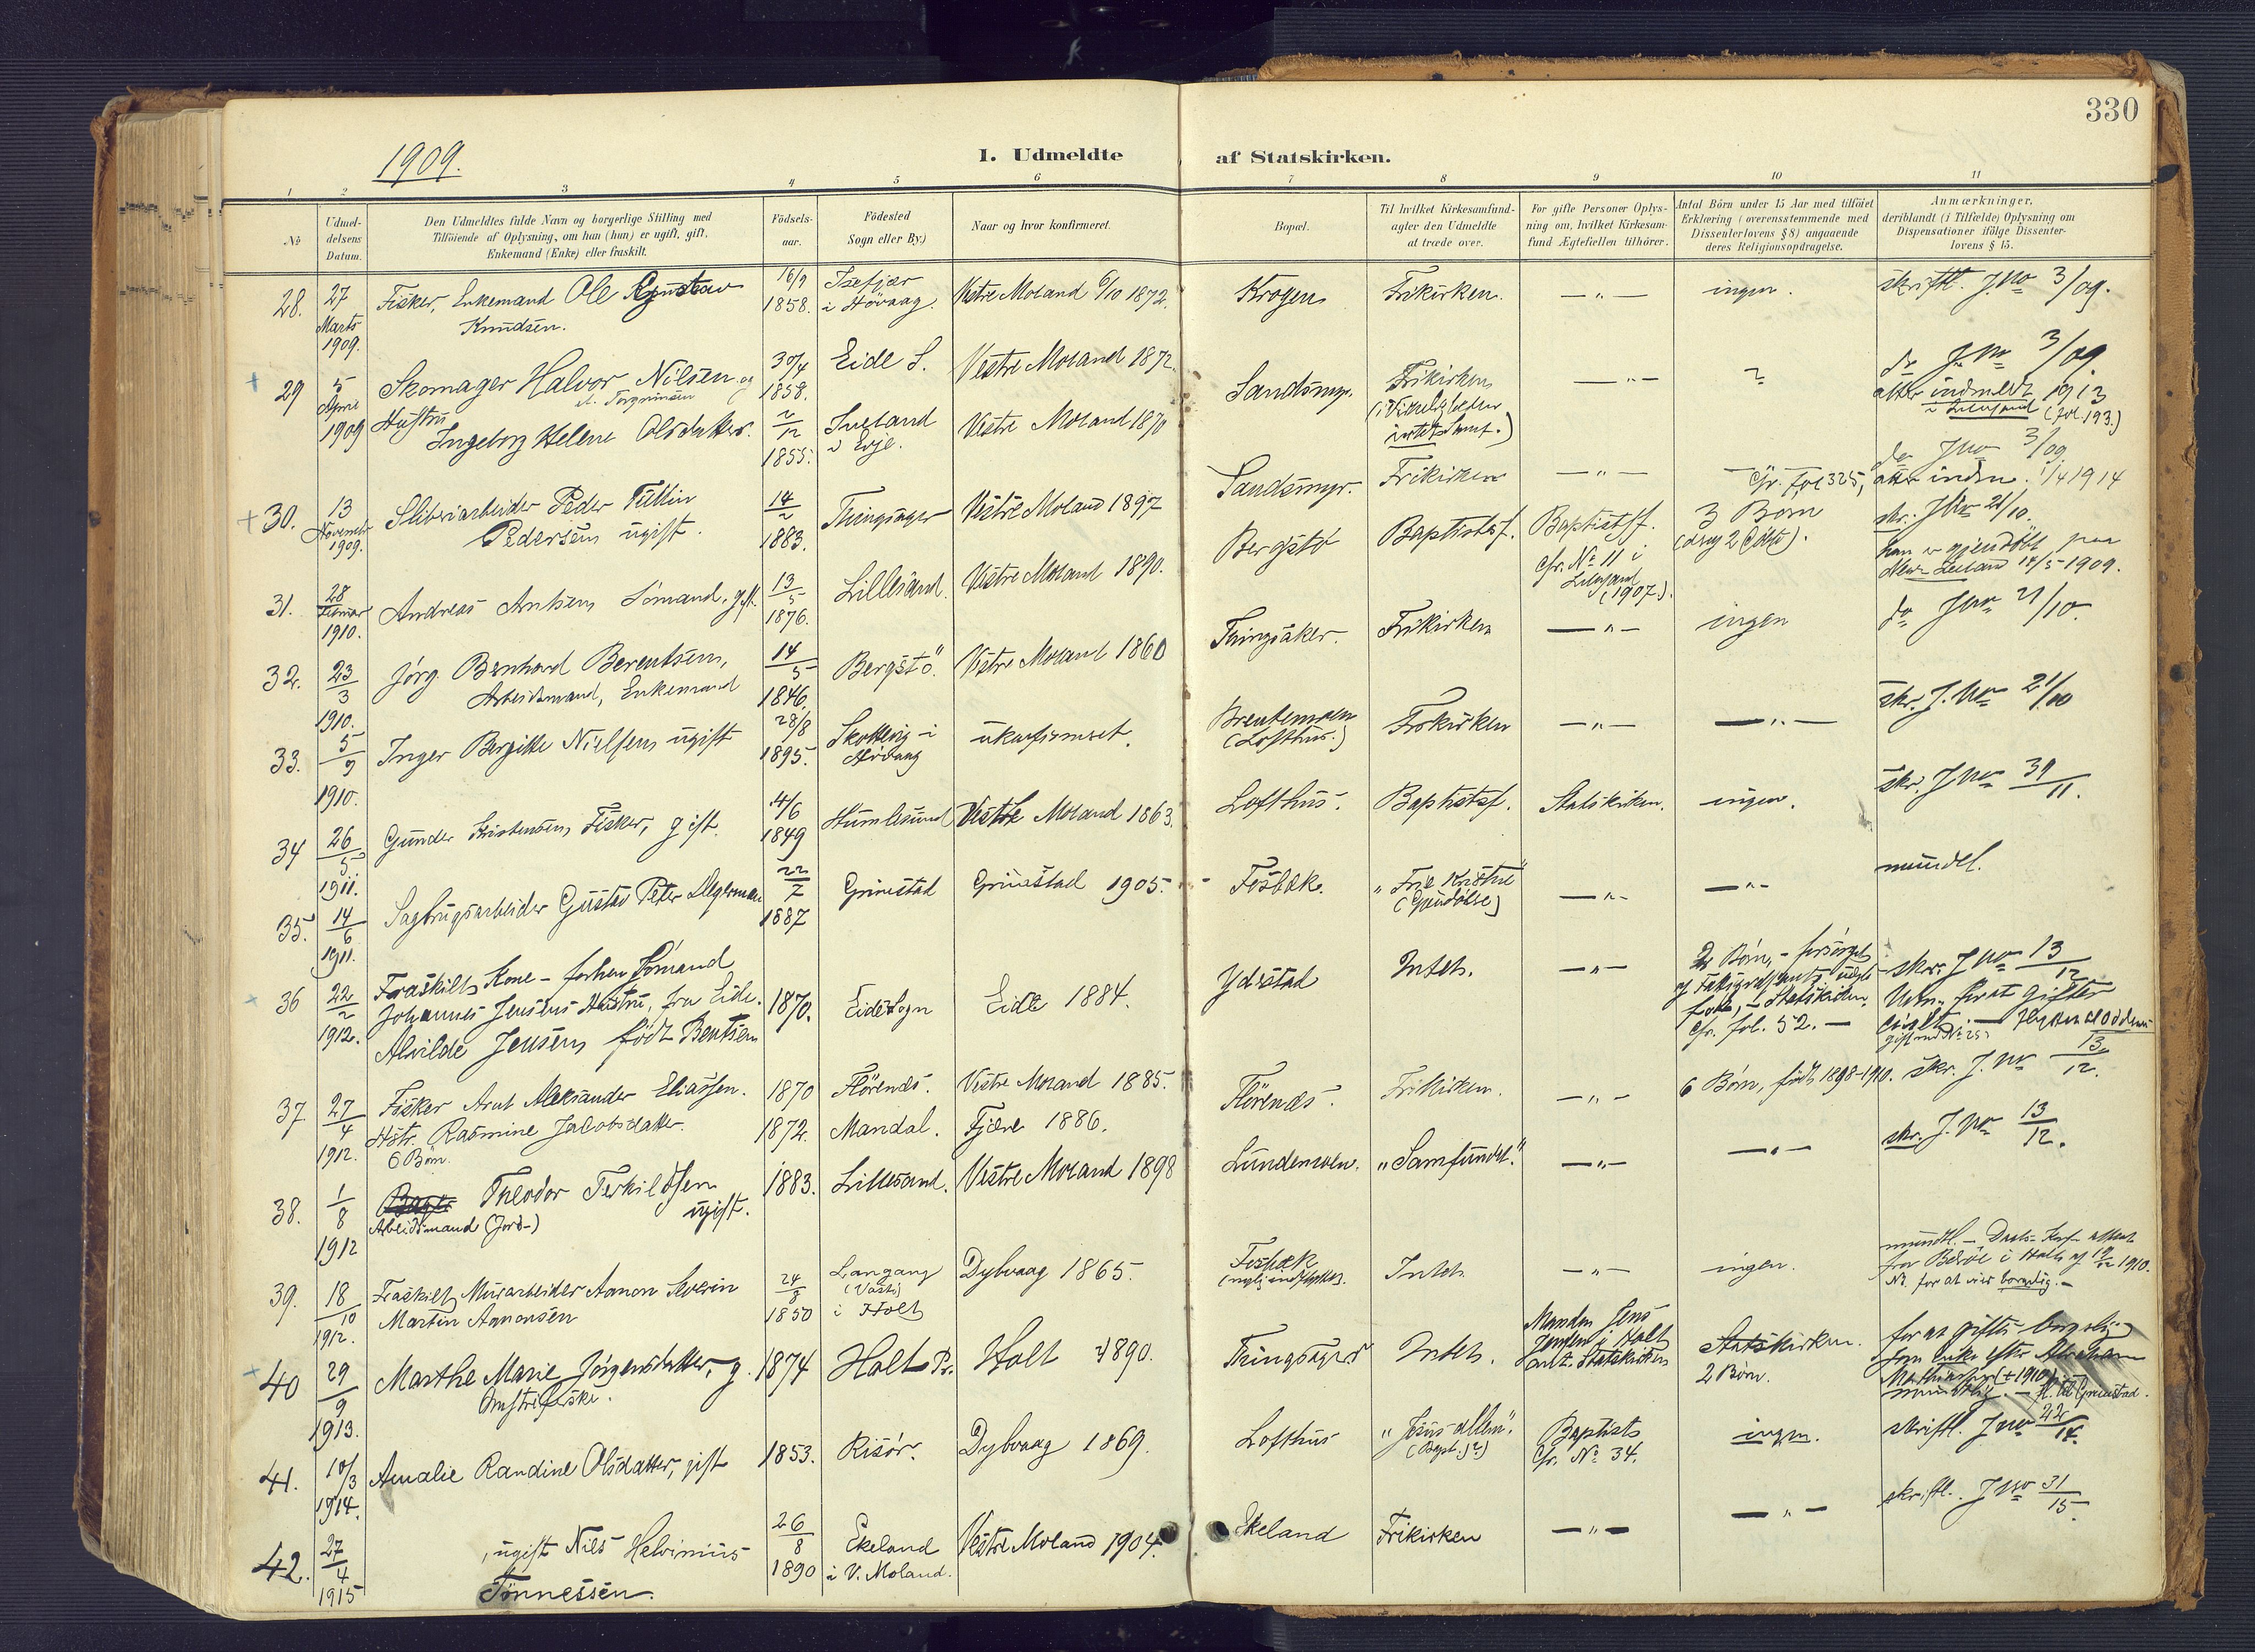 330
1909.
1. Udmeldte af Statskirken.
1 2 3 4 5 6 7 8 9 10 11
No
Udmel-
delsens
Datum.
Den Udmeldtes fulde Navn og borgerlige Stilling med
Tilföiende af Oplysning, om han (hun) er ugift, gift,
Enkemand (Enke) eller fraskilt.
Födsels-
aar.
Födested
Sogn eller By.)
Naar og hvor konfirmeret.
Bopæl.
Til hvilket Kirkesamfund
agter den Udmeldte
at træde over.
For gifte Personer Oplys-
ning om, hvilket Kirkesam-
fund Ægtefellen tilhörer.
Antal Börn under 15 Aar med tilföiet
Erklæring (overensstemmende med
Dissenterlovens § 8) angaaende
deres Religionsopdragelse.
Anmærkninger,
deriblandt (i Tilfælde) Oplysning om
Dispensationer ifölge Dissenter-
lovens § 15.
28.
27
Marts
1909.
Fisker, Enkemand Ole Gustav
Knudsen.
16/9
1858.
Isefjær
i Hövaag.
Vestre Moland 6/10 1872.
Krogen
Frikirken.
— " —
ingen.
skriftl. J.No 3/09.
29
5
April
1909
Skomager Halvor Nilsen og
Hustru
Ingeborg Helene Olsdatter.
30/4
1858.
2/12
1855.
Eide S.
Iveland
i Evje.
Vestre Moland 1872.
Vestre Moland 1870
Sandsmyr.
Frikirken
— " —
do J.No 3/09
atter indmeldt 1913
i Lillesand (fol. 193.)
Sandsmyr.
Frikirken
— " —
cfr. fol 325,
do J No 3/09
atter indm. 1/4 1914
30.
13
November
1909.
Sliberiarbeider Peder Tellin
Pedersen ugift.
14/2
1883.
Thingsager
Vestre Moland 1897
Bergstö
Baptistsf.
Baptistsf.
cfr. No 11 i
Lillesand
(1907).
3 Born
skr. J No 21/10.
han er gjendöbt paa
New Zeeland 14/5 1909.
31.
28
Februar
1910.
Andreas Arntsen Sömand, gift.
13/5
1876.
Lillesand.
Vestre Moland 1890.
Thingsaker.
Frikirken
— " —
ingen
do J No 21/10.
32.
23/3
1910.
Jörg. Bernhard Berentsen,
Arbeidsmand, Enkemand
14/5
1846.
Bergstö
Vestre Moland 1860
(Lofthus.)
Frikirken
— " —
— " —
skr. J. No 21/10
33.
5/9
1910.
Inger Bergitte Nielsen ugift
28/8
1895.
Skottevig i
Hövaag
ukonfirmeret.
Lofthus.
Baptistsf.
Statskirken.
ingen.
skr. J No 31/11.
34
26/5
1911.
Gunder Kristensen, Fisker, gift.
4/6
1849
Humlesund
Vestre Moland 1863.
Fosbæk.
"Frie Kristne"
— " —
— " —
mundtl.
35.
14/6
1911.
Sagbrugsarbeider Gustav Peter Degerman
22/7
1887
Grimstad
Grimstad 1905.
Ydestad
Intet.
— " —
2 Börn,
cfr. fol. 52. —
skr. J No 13/12
36
22/2
1912.
Fraskilt Kone – forhen Sömand
Johannes Jensens Hustru, fra Eide.
Alvilde Jensen född Bentsen
1870.
Eide Sogn
Eide 1884.
37
27/4
1912.
Fisker Arnt Aleksander Eliassen.
Hstr. Rasmine Jakobsdatter.
6 Börn.
1870
1872.
Flörenæs.
Mandal.
Vestre Moland 1885.
Fjære 1886.
Flörenæs.
Frikirken.
— " —
6 Börn, födt 1898-1910.
skr. J. No 13/12.
38.
1/8
1912
Theodor Terkildsen
Arbeidsmand (Jord-) ugift.
1883.
Lillesand.
Vestre Moland 1898
Lundemoen.
"Samfundet."
— " —
— " —
skr. J. No 13/12.
39.
18/10
1912.
Fraskilt Murarbeider Aanon Severin
Martin Aanonsen
24/8
1850
Langang
i Holt
Dybvaag 1865.
Fosbæk
Intet.
— " —
ingen.
40
29/9
1913.
Marthe Marie Jörgensdatter, g.
1874
Holt Pr.
Holt 1890.
Thingsager
Intet.
Manden Jens
Jensen i Holt
Statskirken
Statskirken.
2 Börn.
for at giftes borgerlig
som enke efter Abraham
41.
10/3
1914.
Amalie Randine Olsdatter, gift
1853.
Risör.
Dybvaag 1869.
Lofthus
"Jesus allen".
Baptists
cfr. No 34.
ingen.
skriftl. J No 22/14.
42.
27/4
1915
, ugift Nils Helvinius
Tönnessen.
26/8
1890
Ekeland
i V. Moland.
Vestre Moland 1904.
Ekeland
Frikirken
— " —
— " —
skriftl. J No 31/15.